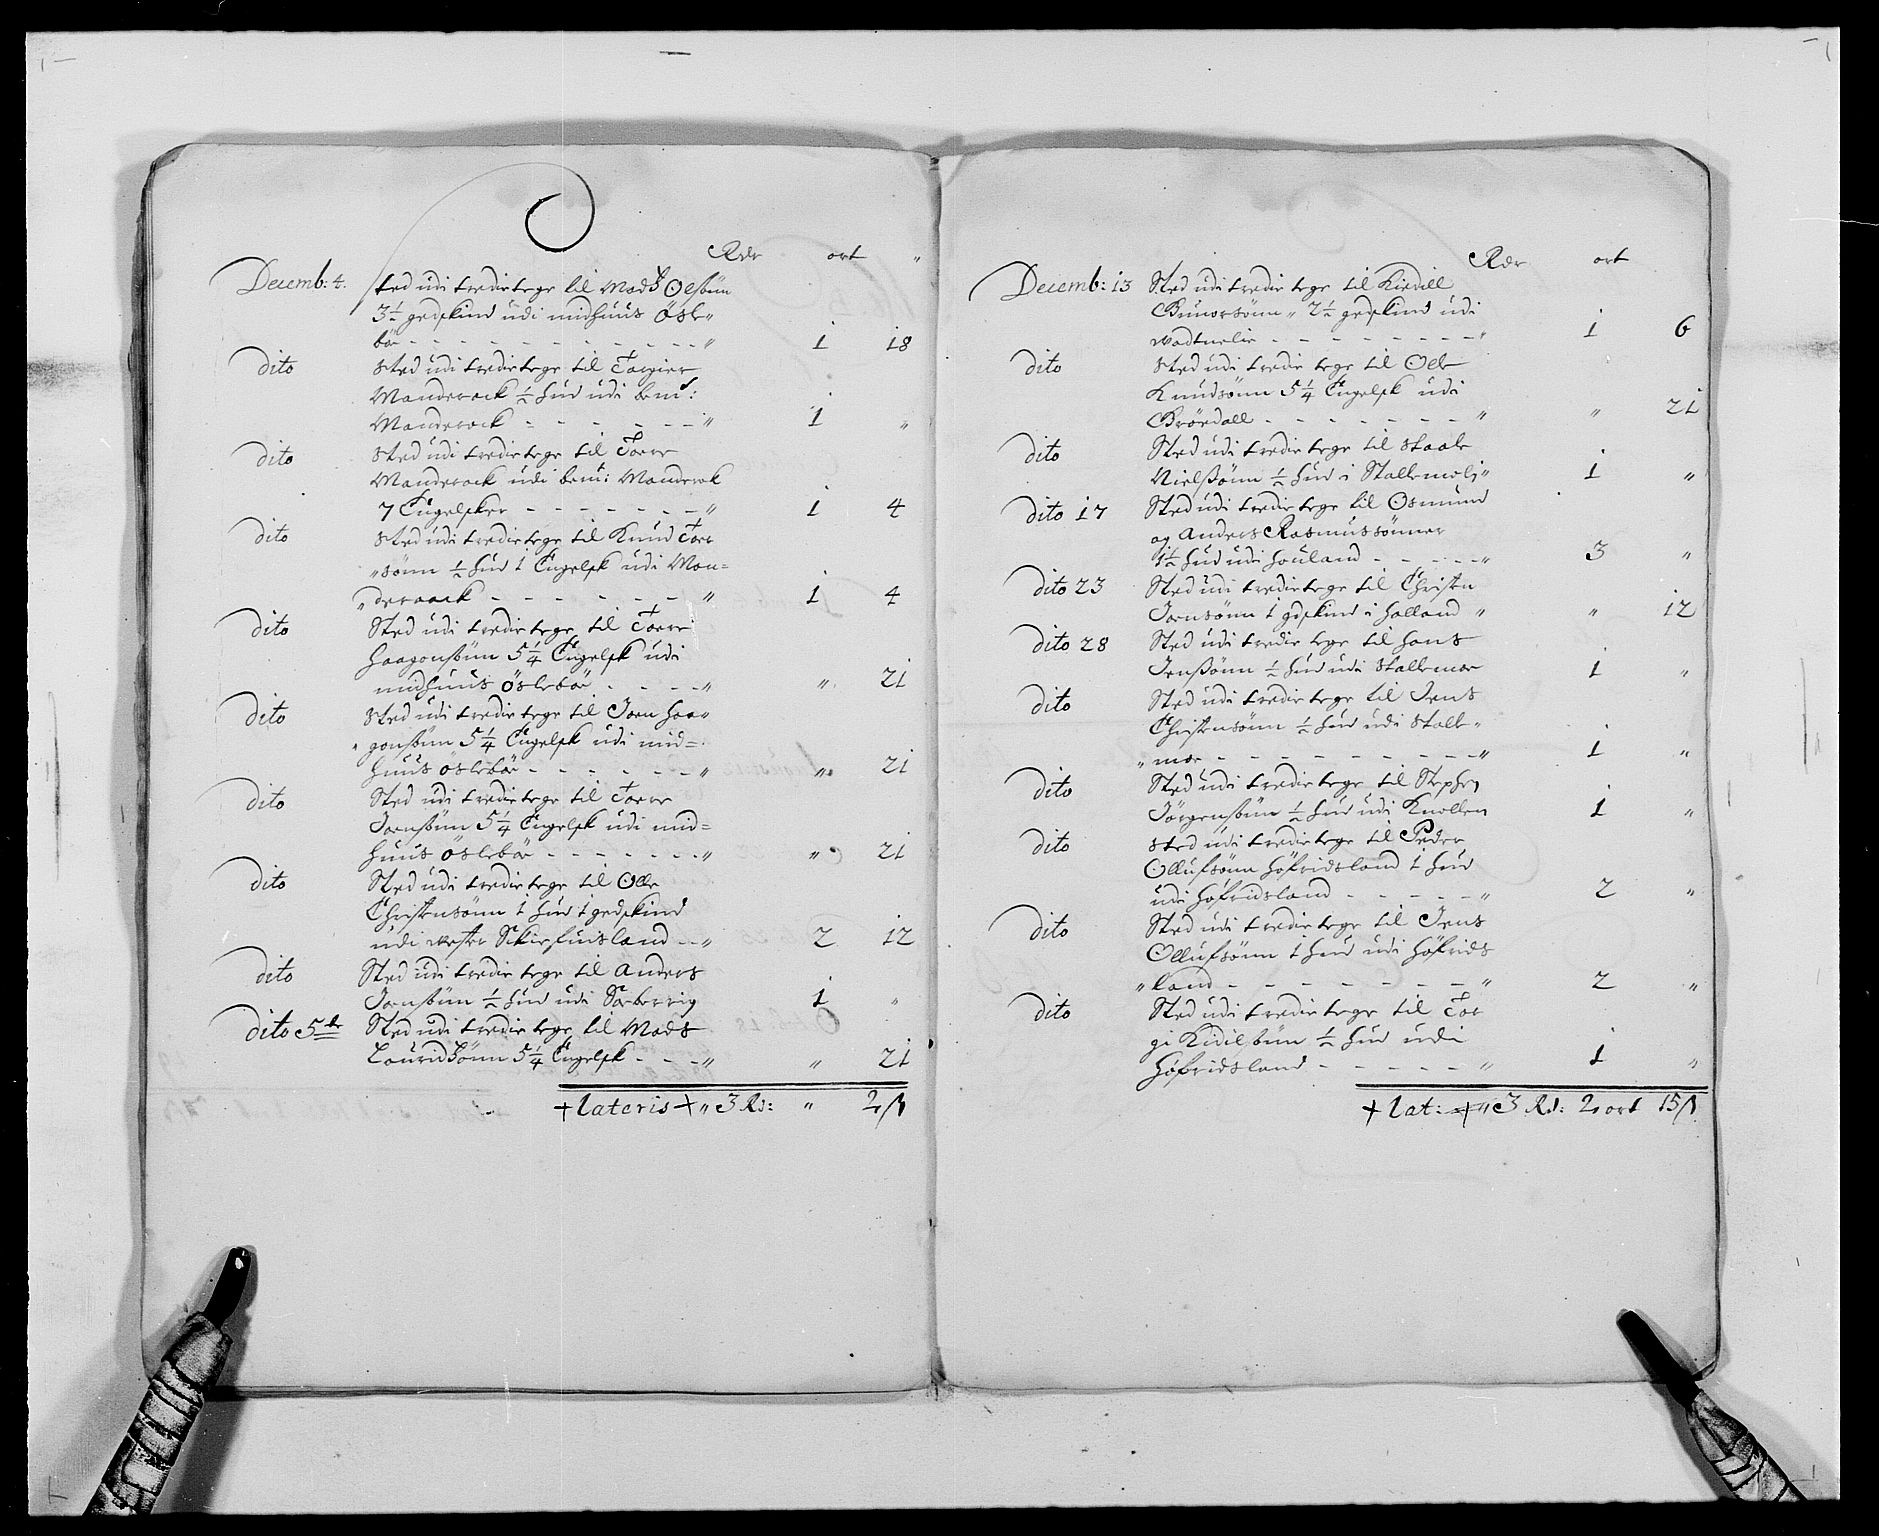 Rdr ort "
Decemb: 4. sted udi tredie tege til Madtz Olsøn
3½ gedskind udi midhuus Ösle"
bör - - - - - - - - - - " 1 18
dito sted udi tredie tege til Torgier
Manderock ½ hud udi bemt:
Manderock - - - - - - - " 1 "
dito sted udi tredie tege til Torre
Manderock udi bemt: Manderok
7 Engelsker - - - - - - - " 1 4
dito sted udi tredie tege til Knud Torr
"sönn ½ hud 1 Engelsk udi Man=
"deraack - - - - - - - " 1 4
dito Sted udi tredie tege til Torre
Haagonsøn 5¼ Engelsk udi
midhuus öslebör - - - - " " 21
dito sted udi tredie tege til Joen Haa"
"gonsøn 5¼ Engelsk udi mid=
huus öslebör - - - - - - " " 21
dito Sted udi tredie tege til Torre
Joensøn 5¼ Engelsk udi mid=
huus öslebör - - - - - - - " " 21
dito Sted udi tredie tege til Olle
Christensönn 1 hud 1 gedskind
udi wester Skiefuisland - - " 2 12
dito Sted udi tredie tege til Anders
Joensøn ½ hud udi 1 "
dito 5te Sted udi tredie tege til Mads
Lauridsönn 5¼ Engelsk - - - " " 21
+ lateris + " 3 Rd: " 2 ß
Rdr ort
Decemb: 13 Sted udi tredie tege til Kiedill
Gunorsönn" 2½ gedskind udi
wadtnelie - - - - - - - - " 1 6
dito sted udi tredie tege til Olle
Knudsönn 5¼ Engelsk udi
Bröedall - - - - - - - - " " 21
dito Sted udi tredie tege til Staale
Nielsönn ½ hud i " 1 "
dito 17 Sted udi tredie tege til Osmund
og Anders Rasmussönner
1½ hud udi Houland - - - - - " 3 "
dito 23 Sted udi tredie tege til Christen
Joensönn 1 gedskind i Holland " " 12
dito 28 Sted udi tredie tege til Hans
Jensönn ½ hud udi Stallemoe 1 "
dito Sted udi tredie tege til Jens
Christensönn ½ hud udi Stalle"
"moe - - - - - - - - - - " 1 "
dito Sted udi tredie tege til Stephen
Jörgensøn ½ hud udi Knollen 1 "
dito sted udi tredie tege til Peder
Ollufsönn Höfridsland 1 hud
udi Höfridsland - - - - - " 2 "
dito Sted udi tredie tege til Jens
Ollufsönn 1 hud udi Höfrids
"land - - - - - - - - - " 2 "
dito Sted udi tredie tege til Tor
gi Kidilsøn ½ hud udi
Höfridsland - - - - - " 1 "
+ lat: + " 3 Rd: 2 ort 15 ß